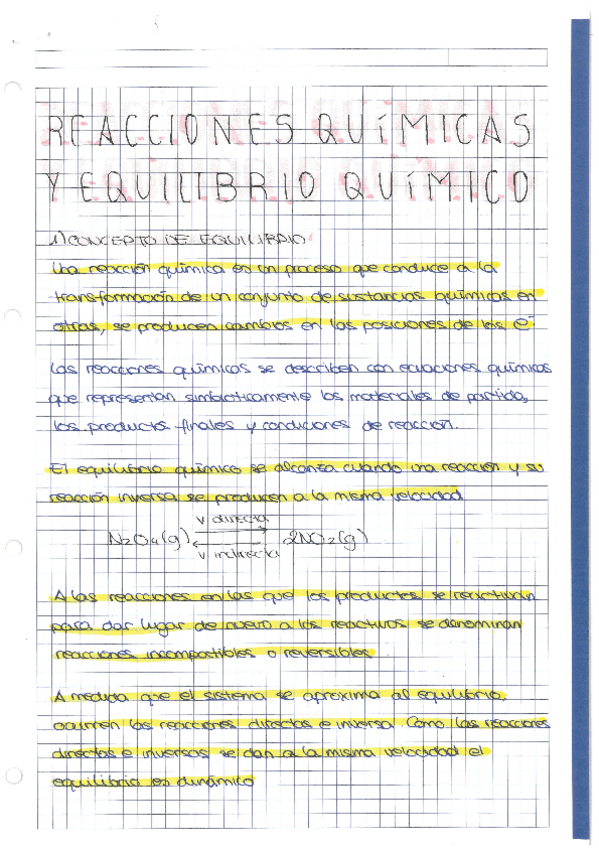 REACCIONES QUÍMICAS
Y EQUILIBRIO QUÍMICO
1) CONCEPTO DE EQUILIBRIO
Una reacción química es un proceso que conduce a la
transformación de un conjunto de sustancias químicas en
otras, se producen cambios en las posiciones de los e⁻
Las reacciones químicas se describen con ecuaciones químicas
que representan simbólicamente los materiales de partida,
los productos finales y condiciones de reacción.
El equilibrio químico se alcanza cuando una reacción y su
reacción inversa se producen a la misma velocidad
v directa
N₂O₄(g) ⇄ 2NO₂(g)
v indirecta
A las reacciones en las que los productos se
para dar lugar de nuevo a los reactivos se denominan
reacciones o reversibles
A medida que el sistema se aproxima al equilibrio,
ocurren las reacciones directas e inversa. Como las reacciones
directas e inversas se dan a la misma velocidad el
equilibrio es dinámico